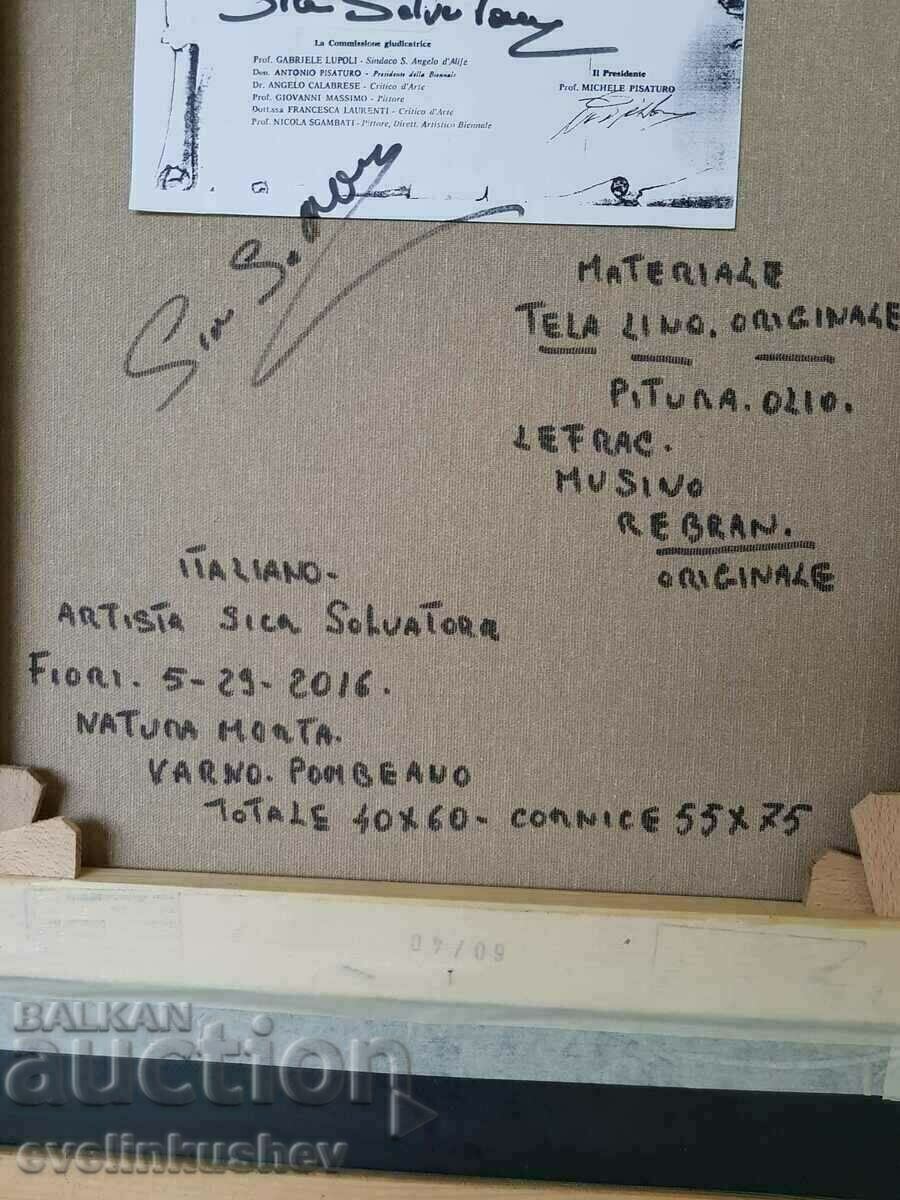 Sica Salvatore
La Commissione giudicatrice
Prof. GABRIELE LUPOLI - Sindaco S. Angelo d'Alife
Don. ANTONIO PISATURO - Presidente della Biennale
Dr. ANGELO CALABRESE - Critico d'Arte
Prof. GIOVANNI MASSIMO - Pittore
Dott.ssa FRANCESCA LAURENTI - Critico d'Arte
Prof. NICOLA SGAMBATI - Pittore, Dirett. Artistico Biennale
Il Presidente
Prof. MICHELE PISATURO
MATERIALE
TELA LINO. ORIGINALE
PITURA. OLIO.
LEFRAC.
MUSINO
REBRAN.
ORIGINALE
ITALIANO.
ARTISTA SICA SALVATORA
FIORI. 5-29-2016.
NATURA MORTA.
VARNO. POMBEANO
TOTALE 40X60- CORNICE 55X75
60/40
BALKAN
auction
evelinkushev